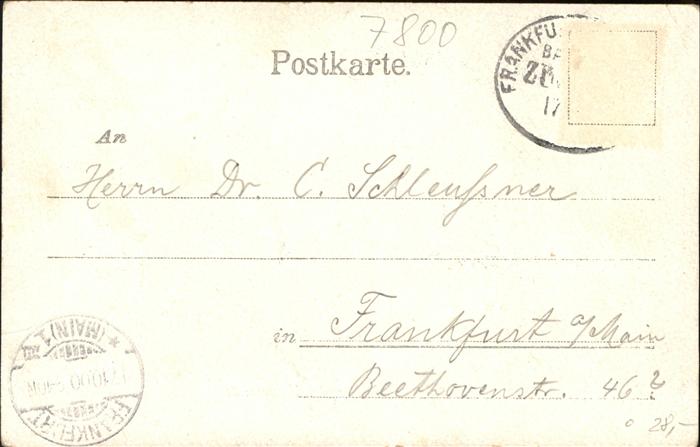 7800
Postkarte.
FRANKFU
ZU
17
An
Herrn Dr. C. Schleußner
in Frankfurt a/Main
Beethovenstr. 46
28,-
FRANKFURT
*(MAIN) 1